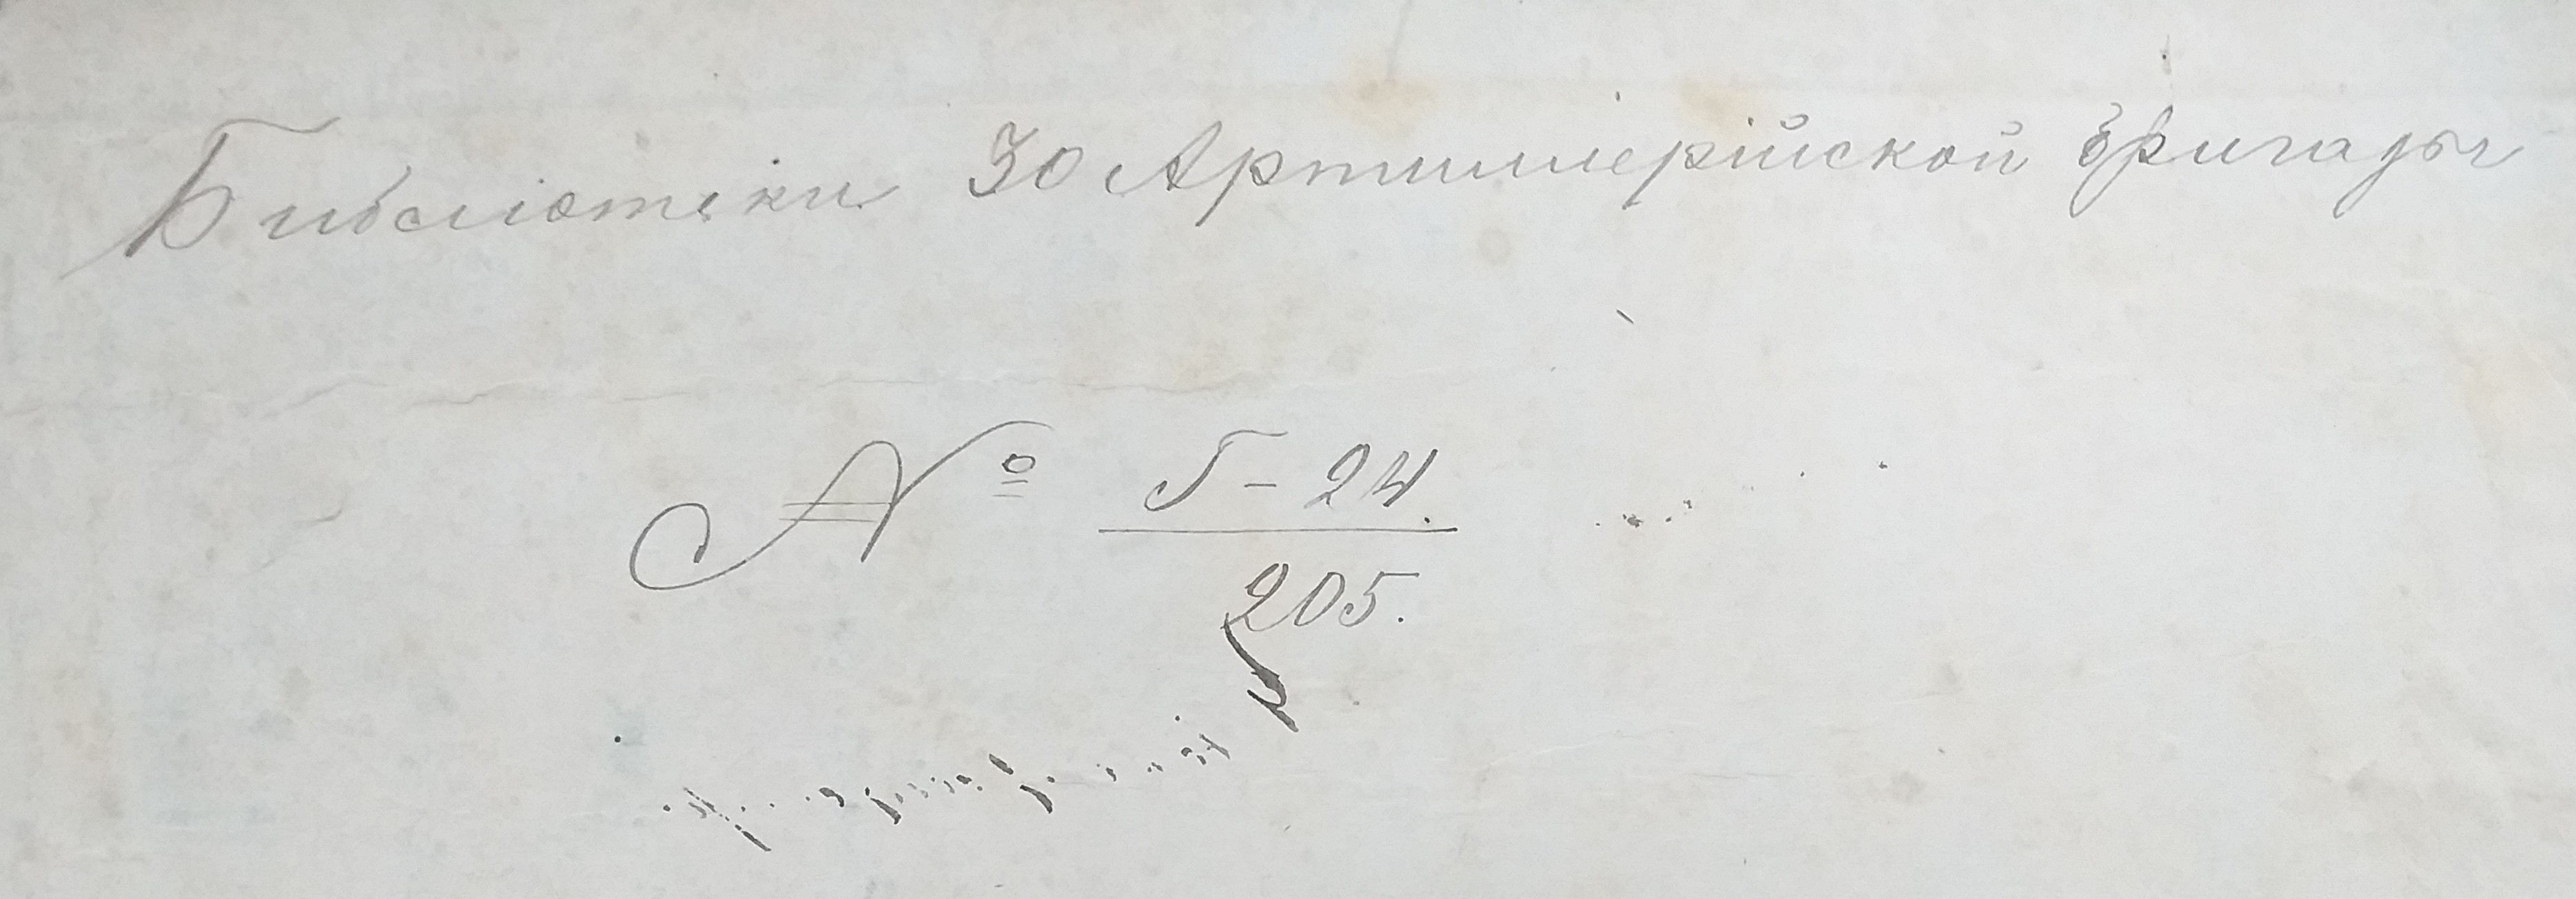 Библіотеки 30 Артиллерійской бригады
№ Г-24.
205.